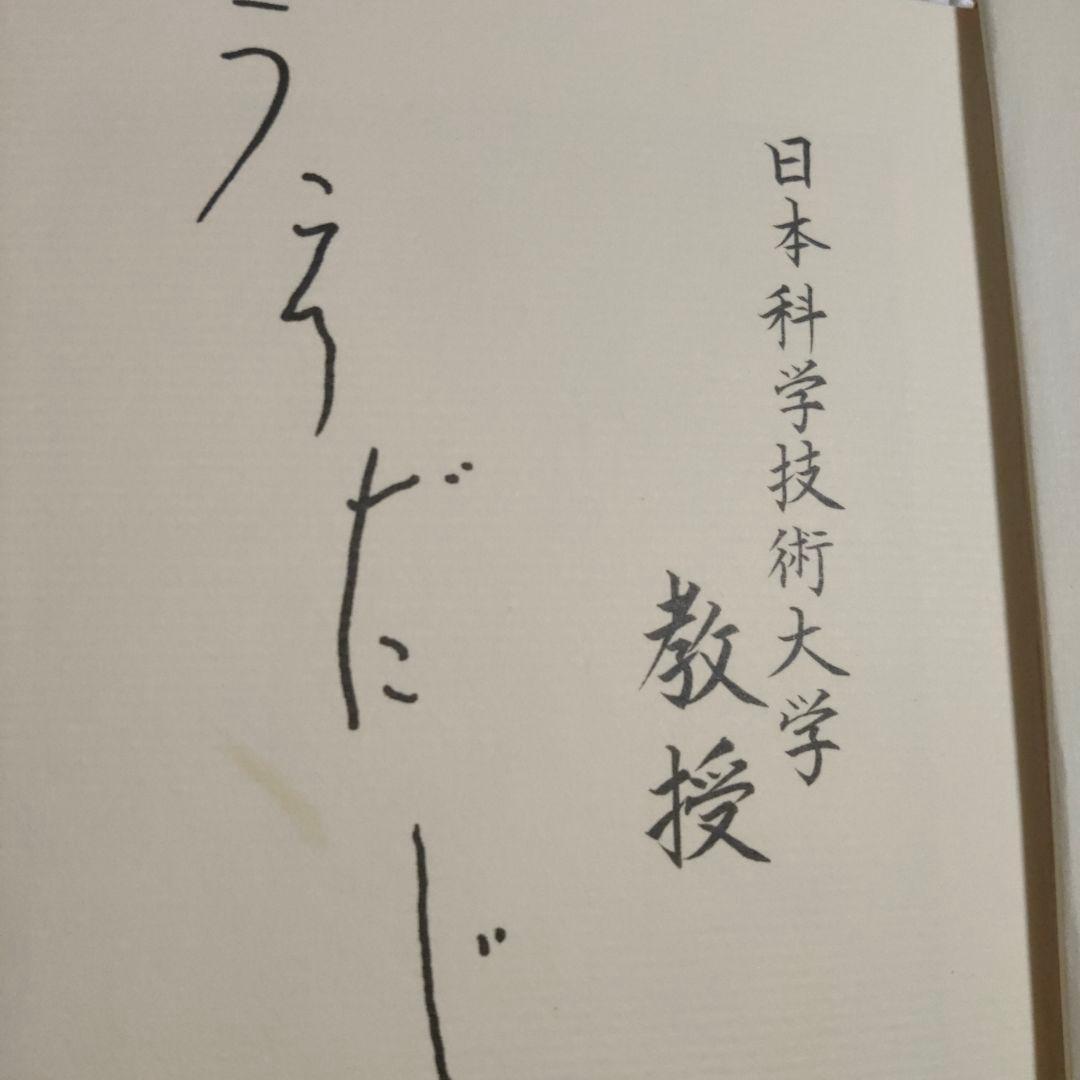 日本科学技術大学
教授
うえだじ